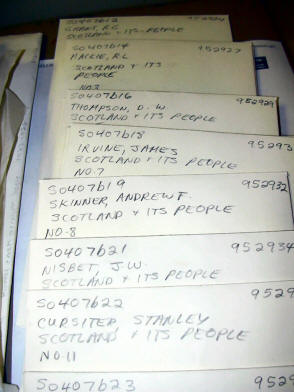 SO407b12 952924
GRANT, R.C
SCOTLAND + ITS PEOPLE
SO407b14 952927
MACKIE, R.L
SCOTLAND + ITS
PEOPLE
NO.3
SO407b16 952929
THOMPSON, D.W
SCOTLAND + ITS PEOPLE
SO407b18 95293
IRVINE, JAMES
SCOTLAND + ITS PEOPLE
NO.7
SO407b19 952932
SKINNER, ANDREW F.
SCOTLAND + ITS PEOPLE
NO-8
SO407b21 952934
NISBET, J.W.
SCOTLAND + ITS PEOPLE
SO407b22 9529
CURSITER STANLEY
SCOTLAND + ITS PEOPLE
NO.11
SO407b23 9529